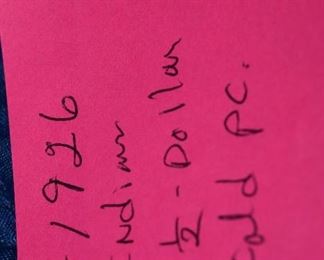 - 1926
Indian
½ - Dollar
Gold PC.